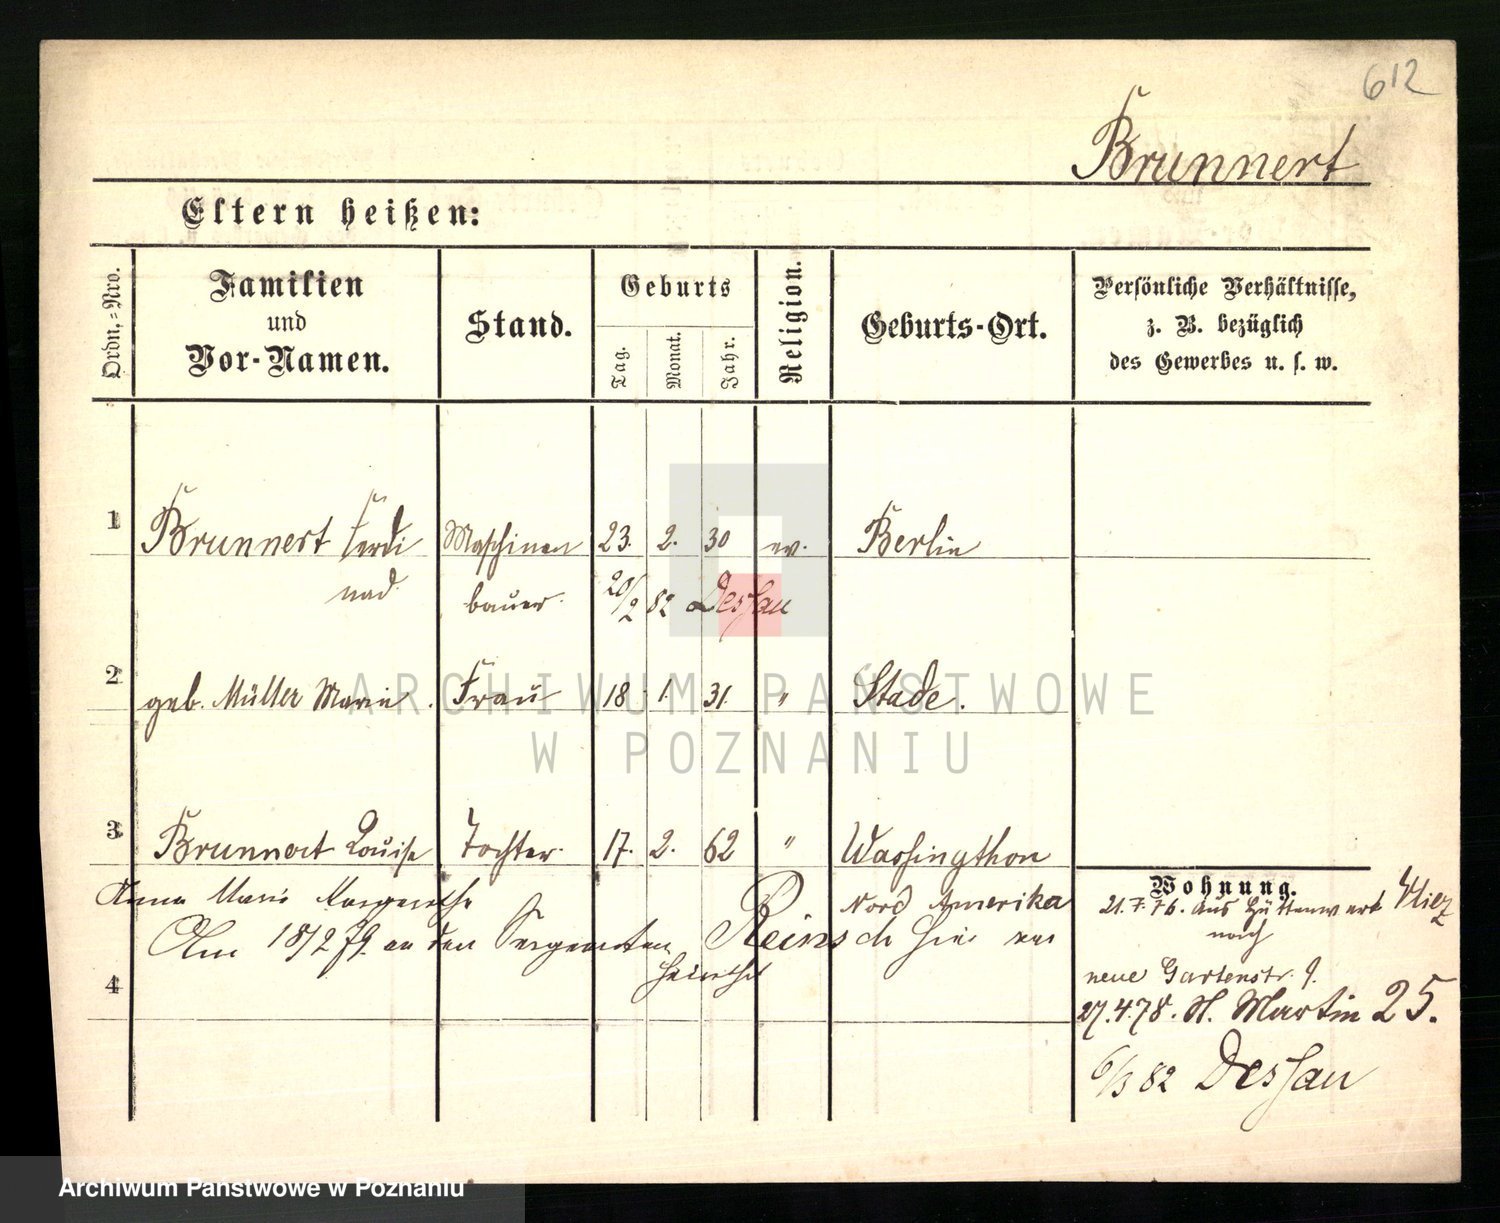 612
Brunnert
Eltern heißen:
Ordn.=Nro.
Familien
und
Vor-Namen.
Stand.
Geburts
Tag.
Monat.
Jahr.
Religion.
Geburts-Ort.
Persönliche Verhältnisse,
z. B. bezüglich
des Gewerbes u. s. w.
1 Brunnert Ferdi Maschinen 23. 2. 30 ev. Berlin
nad. bauer. 20/2 82 Dessau
2 geb. Müller Marie. Frau 18 1. 31. " Stade.
3 Brunnert Louise Tochter 17. 2. 62 " Wassingthon
Anna Marie Margarethe Nord Amerika
Am 18/2 79 an den Sergeanten Reinsch hier ver
heirathet
4
Wohnung.
21.7.76. aus Hüttenwerk
nach
neue Gartenstr. 9.
27.4.78. St. Martin 25.
6/3 82 Dessau
ARCHIWUM PAŃSTWOWE
W POZNANIU
Archiwum Państwowe w Poznaniu